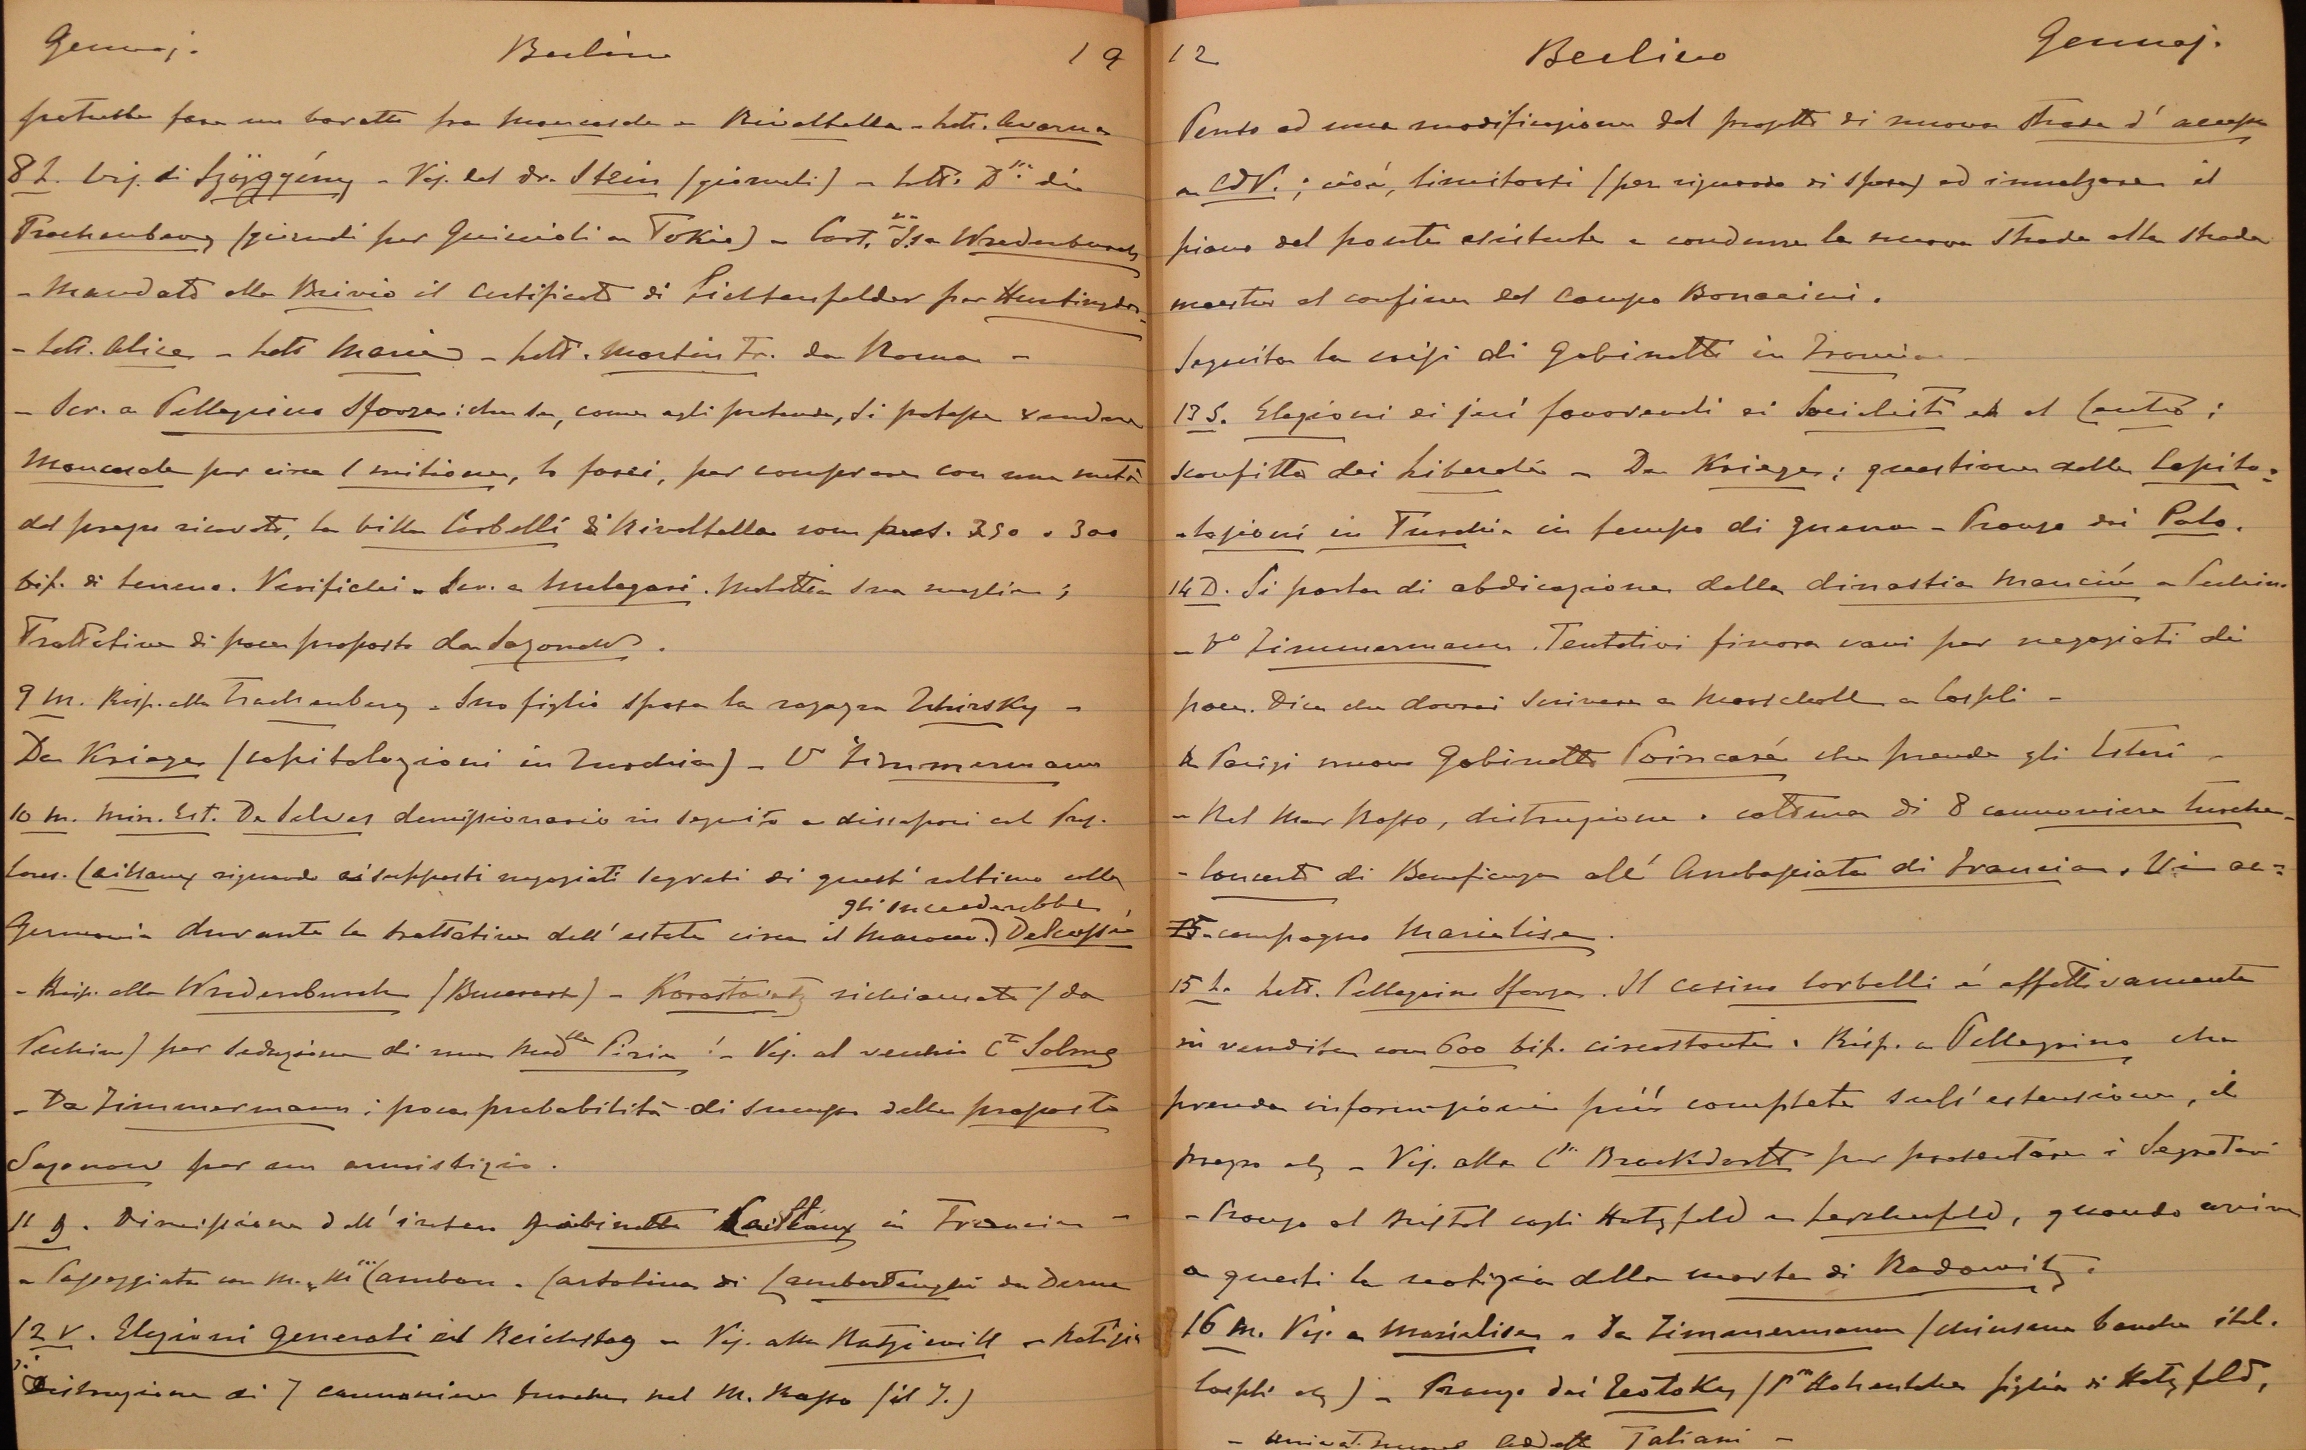 Gennaj. Berlino 19
potrebbe fare un baratto fra Moncasale e Rivaltella - Lett. Avarna
8 L. Vis. di Szögyény - Vis. del dr. Stein (giornali) - Lett. D.ssa di
Trachenberg (giornali per Guiccioli a Tokio) - Cart. Isa Wredenburch
- Mandato alla Brivio il certificato di Lichtenfelder per Huntington
- Lett. Alice - Lett Maria - Lett. Martin Fr. da Roma -
- Scr. a Pellegrino Sforza: che se, come egli pretende, si potesse vendere
Moncasale per circa 1 milione, lo farei, per comprare con una metà
del prezzo ricavato, la villa Corbelli di Rivaltella con 350 o 300
bif. di terreno. Verifichi - Scr. a Melegari. Malattia sua moglie;
Trattative di pace proposte da Sazonow.
9 M. Risp. alla Trachenberg - Suo figlio sposa la ragazza Tchirsky -
Da Kriege (capitolazioni in Turchia) - V Zimmermann
10 M. Min. Est. De Selves demissionario in seguito a dissapori col Pres.
Cons. (Caillaux riguardo ai supposti negoziati segreti di quest'ultimo colla
gli succederebbe
Germania durante le trattative dell'estate circa il Marocco.) Delcassé
- Risp. alla Wredenburch (Bucarest) - Korostowetz richiamato (da
Pechino) per seduzione di una Mad.lle Piria! - Vis. al vecchio C.te Solms
- Da Zimmermann: poca probabilità di successo della proposta
Sazonow per un armistizio.
11 G. Dimissione dell'intero gabinetto Caillaux in Francia -
- Passeggiata con M. e M.me Cambon - Cartolina di Lambertenghi da Derna
12 V. Elezioni generali al Reichstag - Vis. alla Radziwill - Notizia
di
distruzione di 7 cannoniere turche nel M. Rosso (il 7.)
12 Berlino Gennaj.
Penso ad una modificazione del progetto di nuova strada d'accesso
a CdV.; cioè, limitarsi (per riguardo di spesa) ad innalzare il
piano del ponte esistente e condurre la nuova strada alla strada
maestra al confine del Campo Bonacini.
Seguita la crisi di Gabinetto in Francia -
13 S. Elezioni di jeri favorevoli ai Socialisti ed al Centro;
sconfitta dei Liberali - Da Kriege: questione delle Capito=
-lazioni in Turchia in tempo di guerra - Pranzo dai Polo.
14 D. Si parla di abdicazione della dinastia Manciù a Pechino
- V° Zimmermann. Tentativi finora vani per negoziati di
pace. Dice che dovrei scrivere a Marschall a Cospli -
A Parigi nuovo Gabinetto Poincaré che prende gli Esteri -
- Nel Mar Rosso, distruzione o cattura di 8 cannoniere turche -
- Concerto di Beneficenza all'Ambasciata di Francia. Vi ac=
-compagno Marialisa.
15 L. Lett. Pellegrino Sforza. Il casino Corbelli è effettivamente
in vendita con 600 bif. circostanti. Risp. a Pellegrino che
prenda informazioni più complete sull'estensione, il
prezzo etc - Vis. alla C.ssa Brockdorff per presentare i Segretari
- Pranzo al Bristol cogli Hatzfeld e Lerchenfeld, quando arriva
a questi la notizia della morte di Radowitz.
16 M. Vis. a Marialisa - Da Zimmermann (chiusura banche ital.
Cospli etc) - Pranzo dai Teotoky (P.ssa Hohenlohe figlia di Hatzfeld,
- nuovo addetto Taliani -